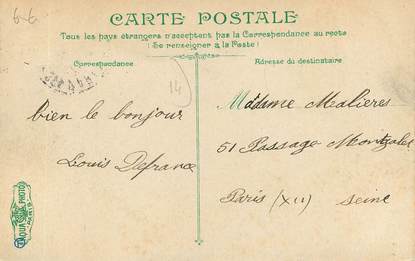 6-6
CARTE POSTALE
Tous les pays étrangers n'acceptent pas la Correspondance au recto
(Se renseigner à la Poste)
Correspondance
Adresse du destinataire
14
bien le bonjour
Louis Defrance
Madame Malières
51 Passage
Paris (XII) Seine
AQUA PHOTO
PARIS